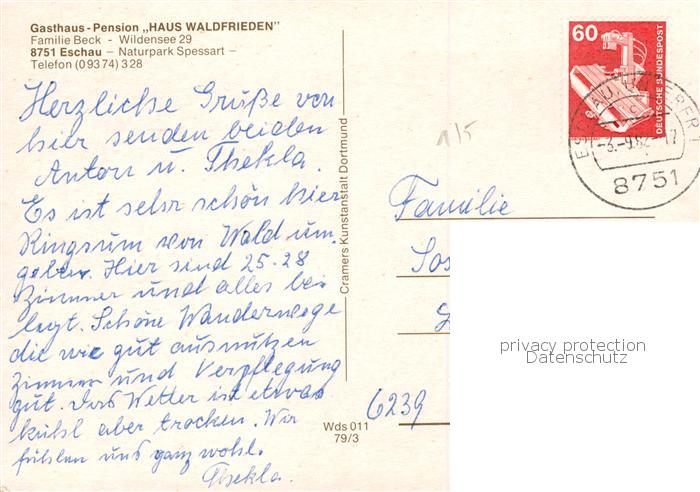 Gasthaus - Pension „HAUS WALDFRIEDEN"
Familie Beck - Wildensee 29
8751 Eschau – Naturpark Spessart –
Telefon (0 93 74) 3 28
Herzliche Grüße von
hier senden beiden
Anton u. Thekla.
Es ist sehr schön hier
Ringsum von Wald um-
geben. Hier sind 25-28
Zimmer und alles be
legt. Schöne Wanderwege
die wir gut ausnutzen
Zimmer und Verpflegung
gut. Das Wetter ist etwas
kühl aber trocken. Wir
fühlen uns ganz wohl.
Thekla.
Cramers Kunstanstalt Dortmund
Wds 011
79/3
1/5
60
DEUTSCHE BUNDESPOST
-3.-9.82-17
8751
Familie
6239
privacy protection
Datenschutz